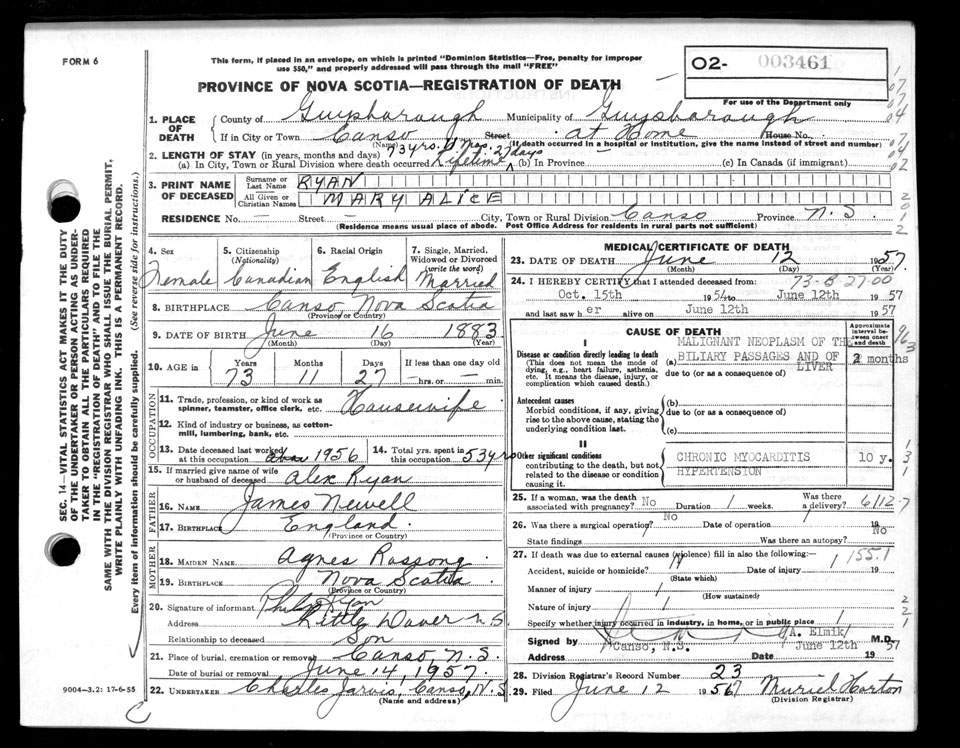 FORM 6
This form, if placed in an envelope, on which is printed "Dominion Statistics—Free, penalty for improper
use $50," and properly addressed will pass through the mail "FREE"
PROVINCE OF NOVA SCOTIA—REGISTRATION OF DEATH
02- 003461
For use of the Department only
1. PLACE OF DEATH County of Guysborough Municipality of Guysborough
If in City or Town Canso Street at Home House No.
(Name) (If death occurred in a hospital or institution, give the name instead of street and number)
2. LENGTH OF STAY (in years, months and days) 73 yrs. 11 Mos. 27 days
(a) In City, Town or Rural Division where death occurred Lifetime (b) In Province — (c) In Canada (if immigrant)
3. PRINT NAME OF DECEASED Surname or Last Name RYAN
All Given or Christian Names MARY ALICE
RESIDENCE No. — Street — City, Town or Rural Division Canso Province N.S.
(Residence means usual place of abode. Post Office Address for residents in rural parts not sufficient)
4. Sex Female
5. Citizenship (Nationality) Canadian
6. Racial Origin English
7. Single, Married, Widowed or Divorced (write the word) Married
8. BIRTHPLACE Canso, Nova Scotia
(Province or Country)
9. DATE OF BIRTH June 16 1883
(Month) (Day) (Year)
10. AGE in Years 73 Months 11 Days 27 If less than one day old — hrs. or — min.
OCCUPATION
11. Trade, profession, or kind of work as spinner, teamster, office clerk, etc. Housewife
12. Kind of industry or business, as cotton-mill, lumbering, bank, etc.
13. Date deceased last worked at this occupation 1956
14. Total yrs. spent in this occupation 53 yrs
15. If married give name of wife or husband of deceased Alex Ryan
FATHER
16. NAME James Newell
17. BIRTHPLACE England
(Province or Country)
MOTHER
18. MAIDEN NAME Agnes
19. BIRTHPLACE Nova Scotia
(Province or Country)
20. Signature of informant Philip Ryan
Address Little Dover N.S.
Relationship to deceased Son
21. Place of burial, cremation or removal Canso N.S.
Date of burial or removal June 14, 1957
22. UNDERTAKER Charles Jarvis, Canso, N.S.
(Name and address)
MEDICAL CERTIFICATE OF DEATH
23. DATE OF DEATH June 12 1957
(Month) (Day) (Year)
24. I HEREBY CERTIFY that I attended deceased from: 73-8 27-00
Oct. 15th 1954 to June 12th 1957
and last saw her alive on June 12th 1957
CAUSE OF DEATH
Approximate interval between onset and death
I
Disease or condition directly leading to death
(This does not mean the mode of dying, e.g., heart failure, asthenia, etc. It means the disease, injury, or complication which caused death.)
(a) MALIGNANT NEOPLASM OF THE
BILIARY PASSAGES AND OF
LIVER
2 months
due to (or as a consequence of)
Antecedent causes
Morbid conditions, if any, giving rise to the above cause, stating the underlying condition last.
(b)
due to (or as a consequence of)
(c)
II
Other significant conditions
contributing to the death, but not related to the disease or condition causing it.
CHRONIC MYOCARDITIS
HYPERTENSION
10 y.
25. If a woman, was the death associated with pregnancy? No Duration / weeks. Was there a delivery? 6112.7
26. Was there a surgical operation? No Date of operation / 19
State findings Was there an autopsy? No
27. If death was due to external causes (violence) fill in also the following: 155.1
Accident, suicide or homicide? Date of injury 19
(State which)
Manner of injury
(How sustained)
Nature of injury
Specify whether injury occurred in industry, in home, or in public place
Signed by A. Elmik M.D.
Address Canso, N.S. Date June 12th 1957
28. Division Registrar's Record Number 23
29. Filed June 12 1957 Muriel Horton
(Division Registrar)
SEC. 14—VITAL STATISTICS ACT MAKES IT THE DUTY
OF THE UNDERTAKER OR PERSON ACTING AS UNDER-
TAKER TO OBTAIN ALL THE PARTICULARS REQUIRED
IN THE "REGISTRATION OF DEATH" AND TO FILE THE
SAME WITH THE DIVISION REGISTRAR WHO SHALL ISSUE THE BURIAL PERMIT.
WRITE PLAINLY WITH UNFADING INK. THIS IS A PERMANENT RECORD.
Every item of information should be carefully supplied. (See reverse side for instructions.)
9004—3.2: 17-6-55